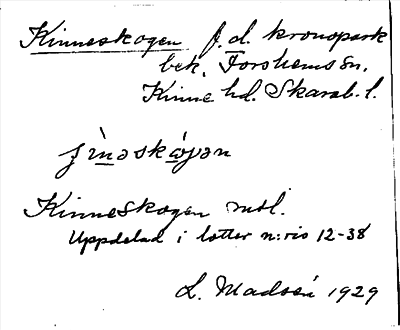 Kinneskogen f.d. kronopark
bek. Forshems sn.
Kinne hd. Skarab. l.
Kinneskogen mtl.
Uppdelad i lotter n:ris 12-38
L. Madsén 1929